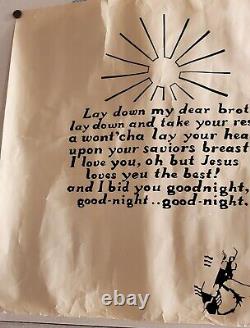 Lay down my dear brot
lay down and take your res
a wont'cha lay your hea
upon your saviors breast
I love you, oh but Jesus
loves you the best!
and I bid you goodnight,
good-night..good-night.
© ebid.com